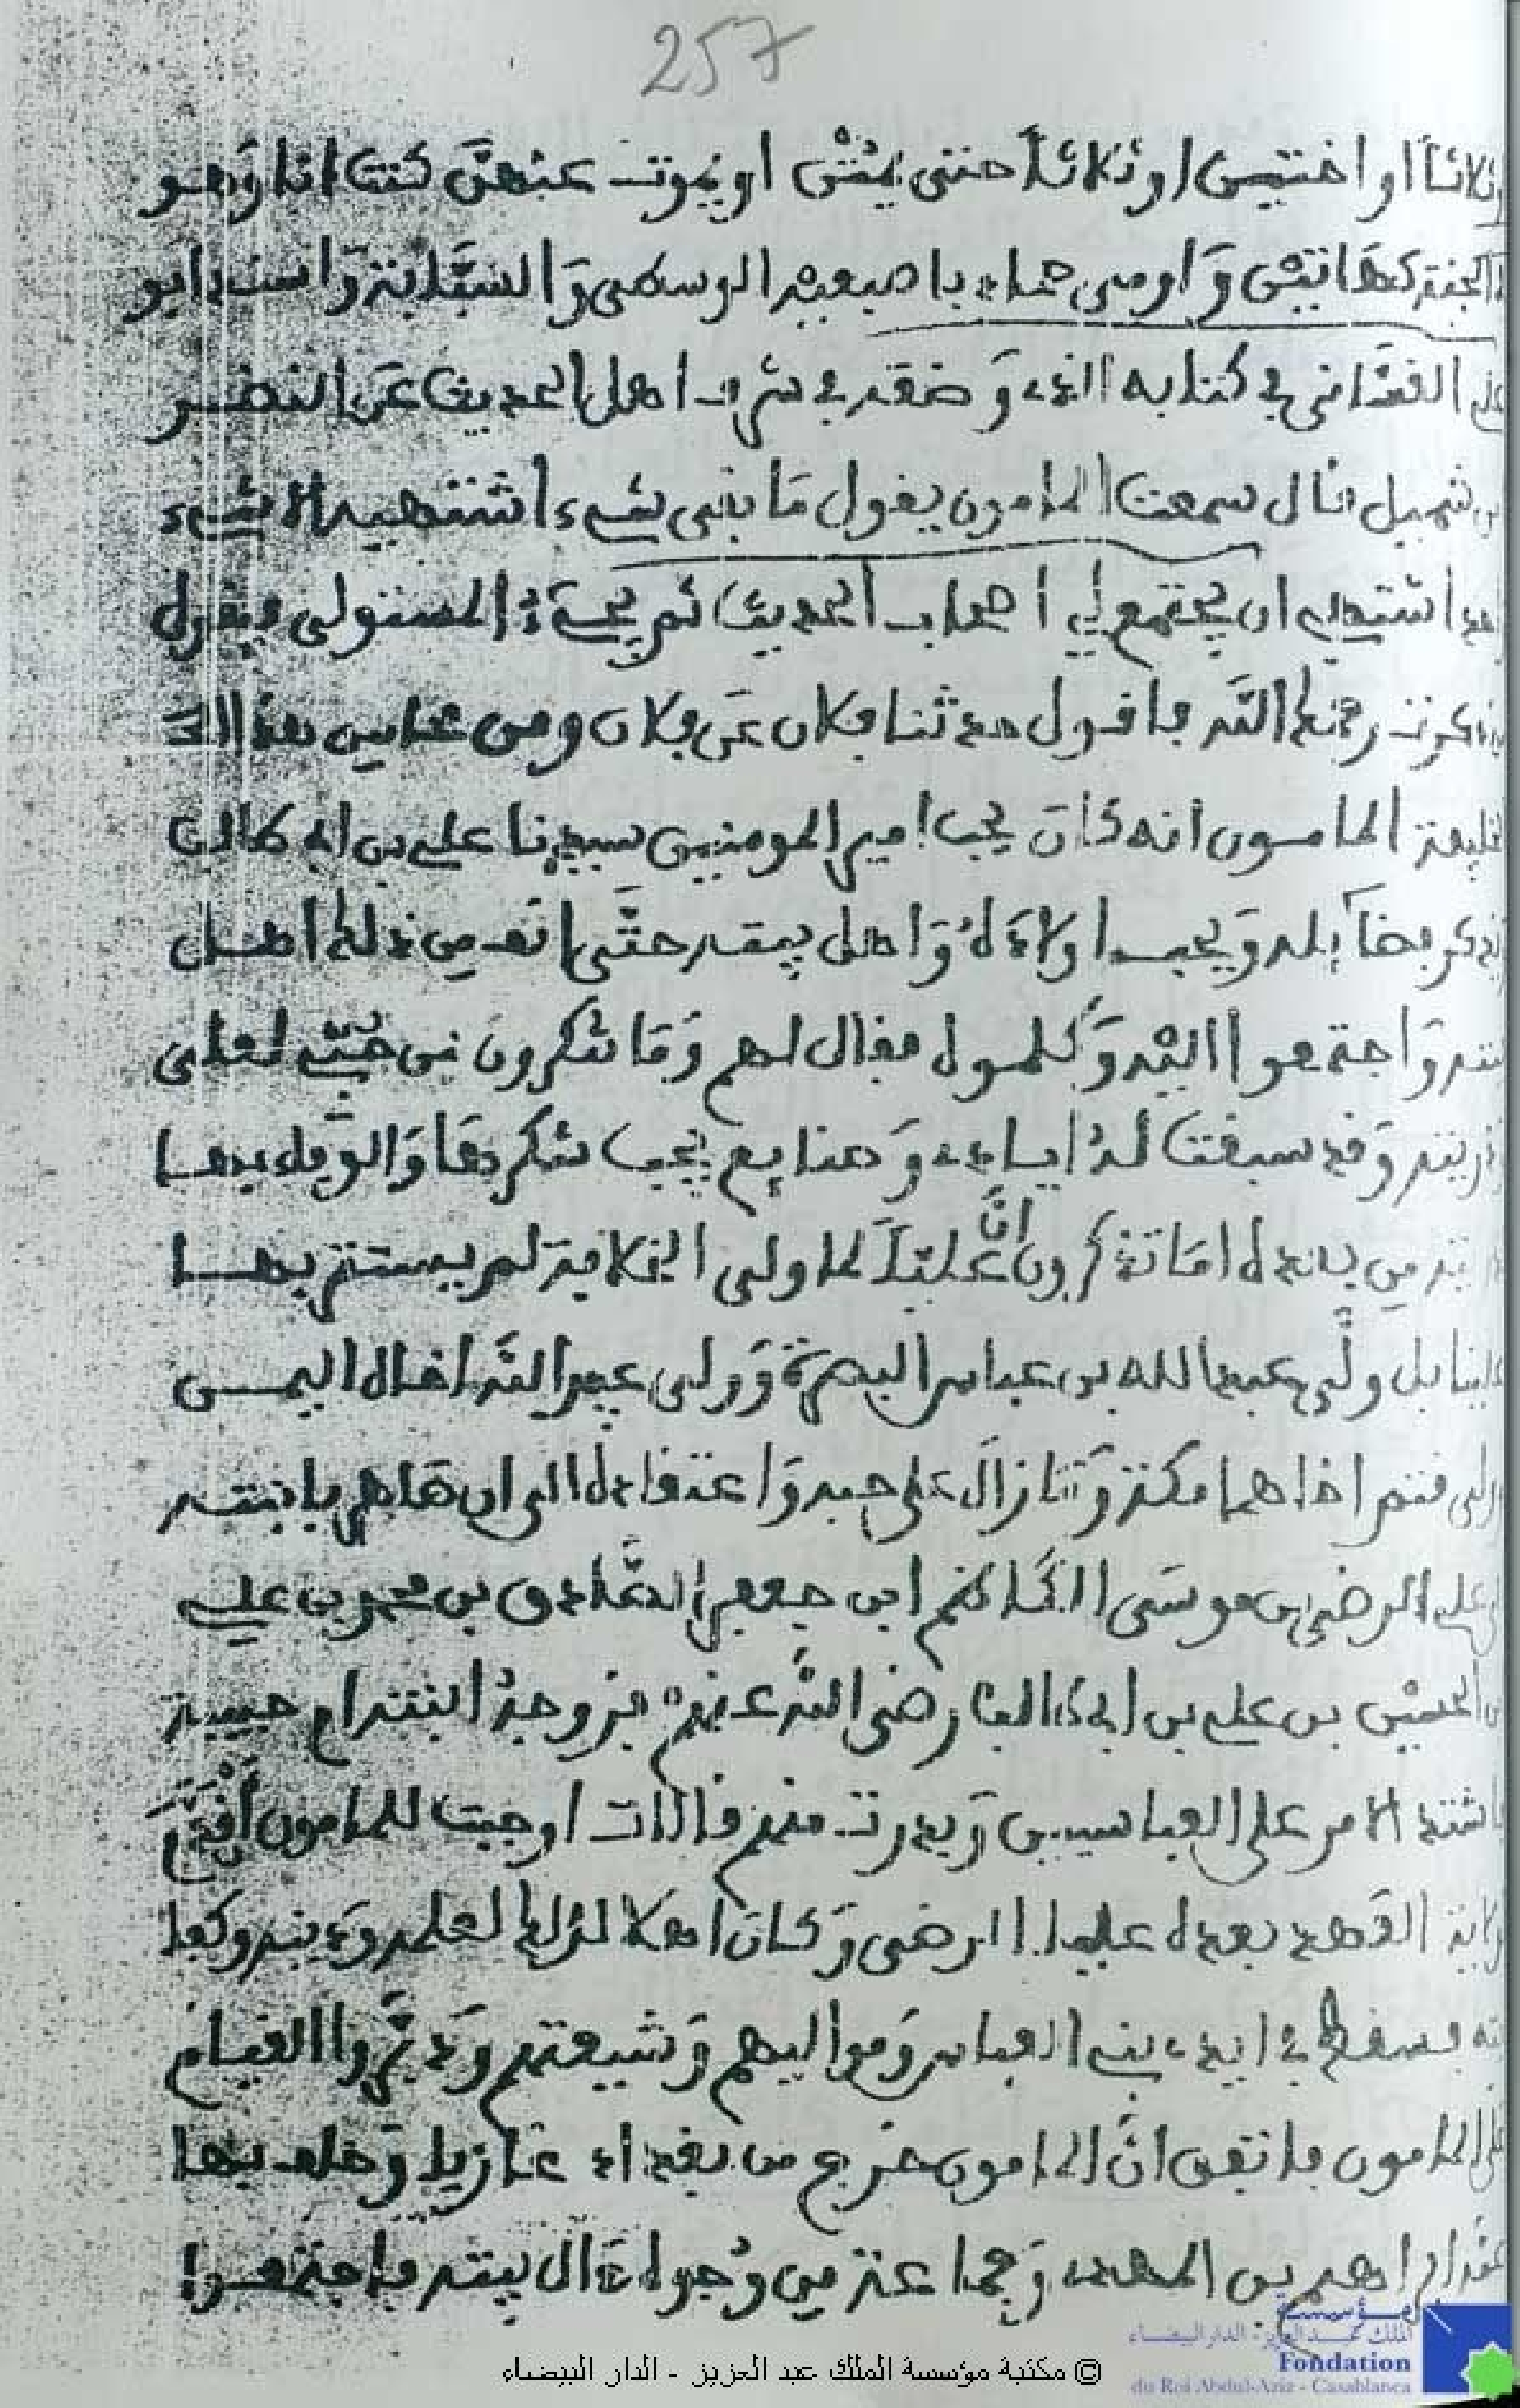 257
وثلاثا او اختين او ثلاثا حتى يمتن او يموت عنهن كنت انا وهو
في الجنة كهاتين واومى حماد باصبعيه الوسطى والسبابة واسند ابو
على الغساني في كتابه الذي وضعه في شرف اهل الحديث عن النضر
بن شميل قال سمعت المامون يقول ما بقي شيء اشتهيه الا شيء
اشتهي ان يجتمع لي اصحاب الحديث ثم يجيء المستولي ويقول
ذكرت رحمك الله فاقول حدثنا فلان عن فلان ومن محاسن هذا
الخليفة المامون انه كان يحب امير المومنين سيدنا علي بن ابي طالب
يذكر فضايله ويحب اولاده واهل بيته حتى انف من ذلك اهل
بيته واجتمعوا اليه وكلموه فقال لهم وما تنكرون من حبي لعلي
وذريته وقد سبقت له ايادي وصنايع يجب شكرها والوفاء بها
من بعده اما تذكرون ان عليا لما ولي الخلافة لم يستاثر بها
علينا بل ولى عبد الله بن عباس البصرة وولى عبيد الله اخاه اليمن
وولى قثم اخاهما مكة وما زال على حبه واعتقاده الى ان صاهر بابنته
على الرضى بن موسى الكاظم ابن جعفر الصادق بن محمد بن علي
بن الحسين بن علي بن ابي طالب رضي الله عنهم فزوجه ابنته ام حبيبة
فاشتد الامر على العباسيين وبدرت منهم قالات اوجبت للمامون ان
ولاية العهد بعده عليا الرضى وكان اهلا لذلك لعلمه ودينه وكما
له فسقط في ايدي بني العباس ومواليهم وشيعتهم ودبروا القيام
على المامون فاتفق ان المامون خرج من بغداد غازيا وخلف بها
عمه ابراهيم بن المهدي وجماعة من وجوه ال بيته فاجتمعوا
© مكتبة مؤسسة الملك عبد العزيز - الدار البيضاء
مؤسسة
الملك عبد العزيز - الدار البيضاء
Fondation
du Roi Abdul-Aziz - Casablanca